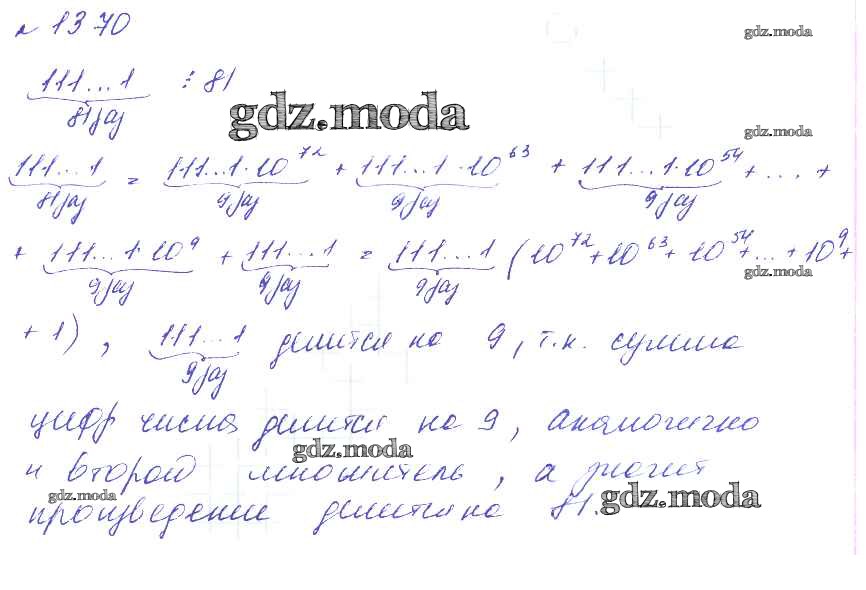 № 1370
gdz.moda
111...1 ⋮ 81
81 раз
gdz.moda
gdz.moda
111...1 = 111...1·10^72 + 111...1·10^63 + 111...1·10^54 + ... +
81 раз 9 раз 9 раз 9 раз
+ 111...1·10^9 + 111...1 = 111...1 (10^72 + 10^63 + 10^54 + ... + 10^9 +
9 раз 9 раз 9 раз
gdz.moda
+ 1), 111...1 делится на 9, т.к. сумма
9 раз
цифр числа делится на 9, аналогично
gdz.moda
и второй множитель, а значит
gdz.moda
gdz.moda
произведение делится на 81.